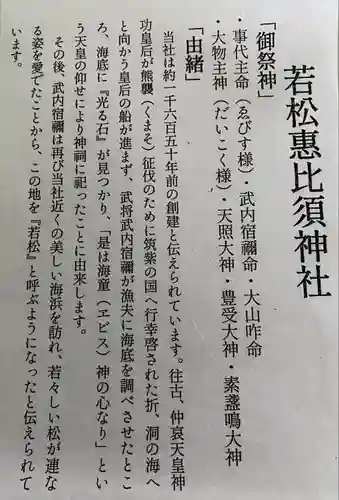 若松惠比須神社
「御祭神」
・事代主命(ゑびす様)・武内宿禰命・大山咋命
・大物主神(だいこく様)・天照大神・豊受大神・素盞鳴大神
「由緒」
当社は約一千六百五十年前の創建と伝えられています。往古、仲哀天皇神
功皇后が熊襲(くまそ)征伐のために筑紫の国へ行幸啓された折、洞の海へ
と向かう皇后の船が進まず、武将武内宿禰が漁夫に海底を調べさせたとこ
ろ、海底に『光る石』が見つかり、「是は海童(ヱビス)神の心なり」とい
う天皇の仰せにより神祠に祀ったことに由来します。
その後、武内宿禰は再び当社近くの美しい海浜を訪れ、若々しい松が連な
る姿を愛でたことから、この地を『若松』と呼ぶようになったと伝えられて
います。